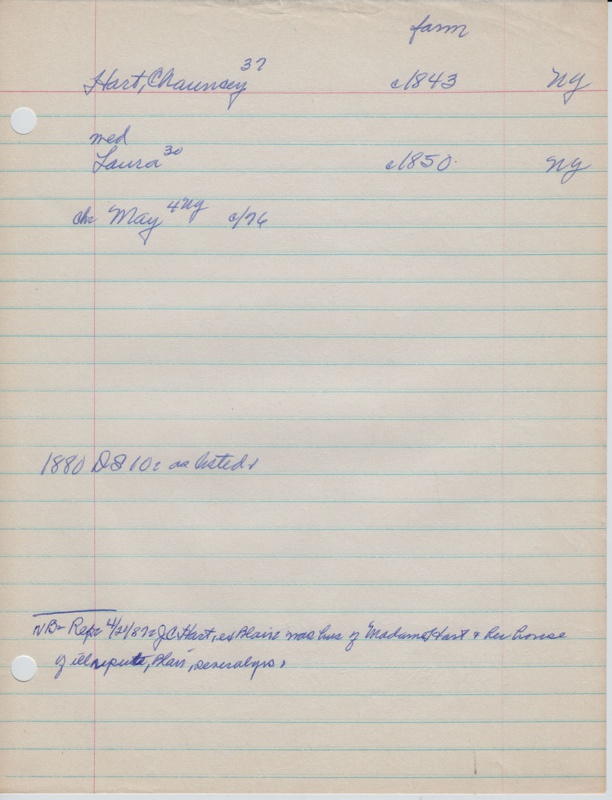 farm
Hart, Chauncey 37 c1843 NY
med
Laura 30 c1850 NY
ch: May 4 NY c/76
1880 DS 10: as listed.
NB- Rep: 4/21/87: J.C. Hart, ex Blair was hus of Madame Hart & her house
of ill repute, Blair, several yrs.